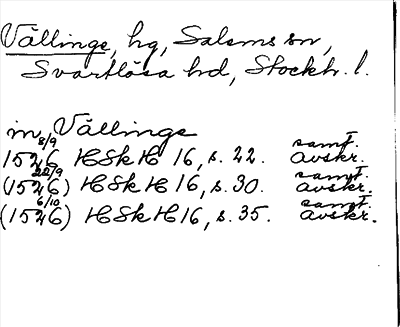 Vällinge, hg, Salems sn,
Svartlösa hd, Stockh. l.
in Vällinge
1526 8/9 HSkH 16, s. 22. samt. avskr.
(1526) 22/9 HSkH 16, s. 30. samt. avskr.
(1526) 6/10 HSkH 16, s. 35. samt. avskr.